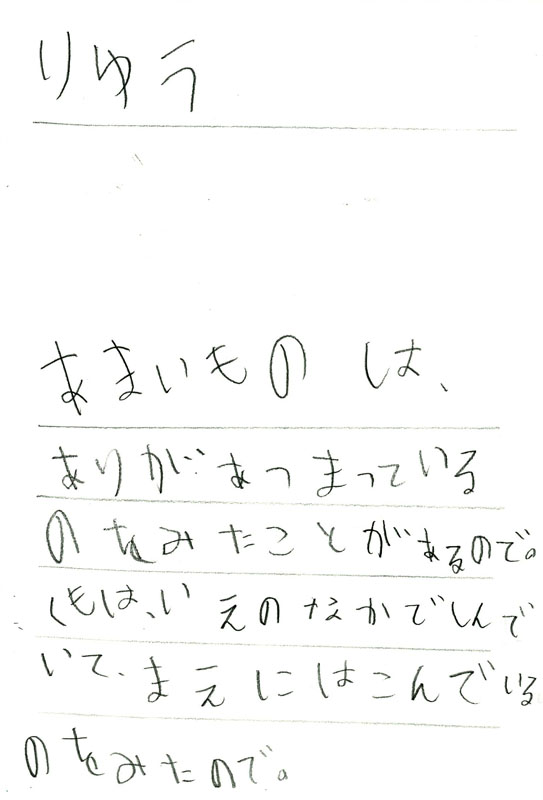 りゆう
あまいものは、
ありがあつまっている
のをみたことがあるので。
くもは、いえのなかでしんで
いて、まえにはこんでいる
のをみたので。